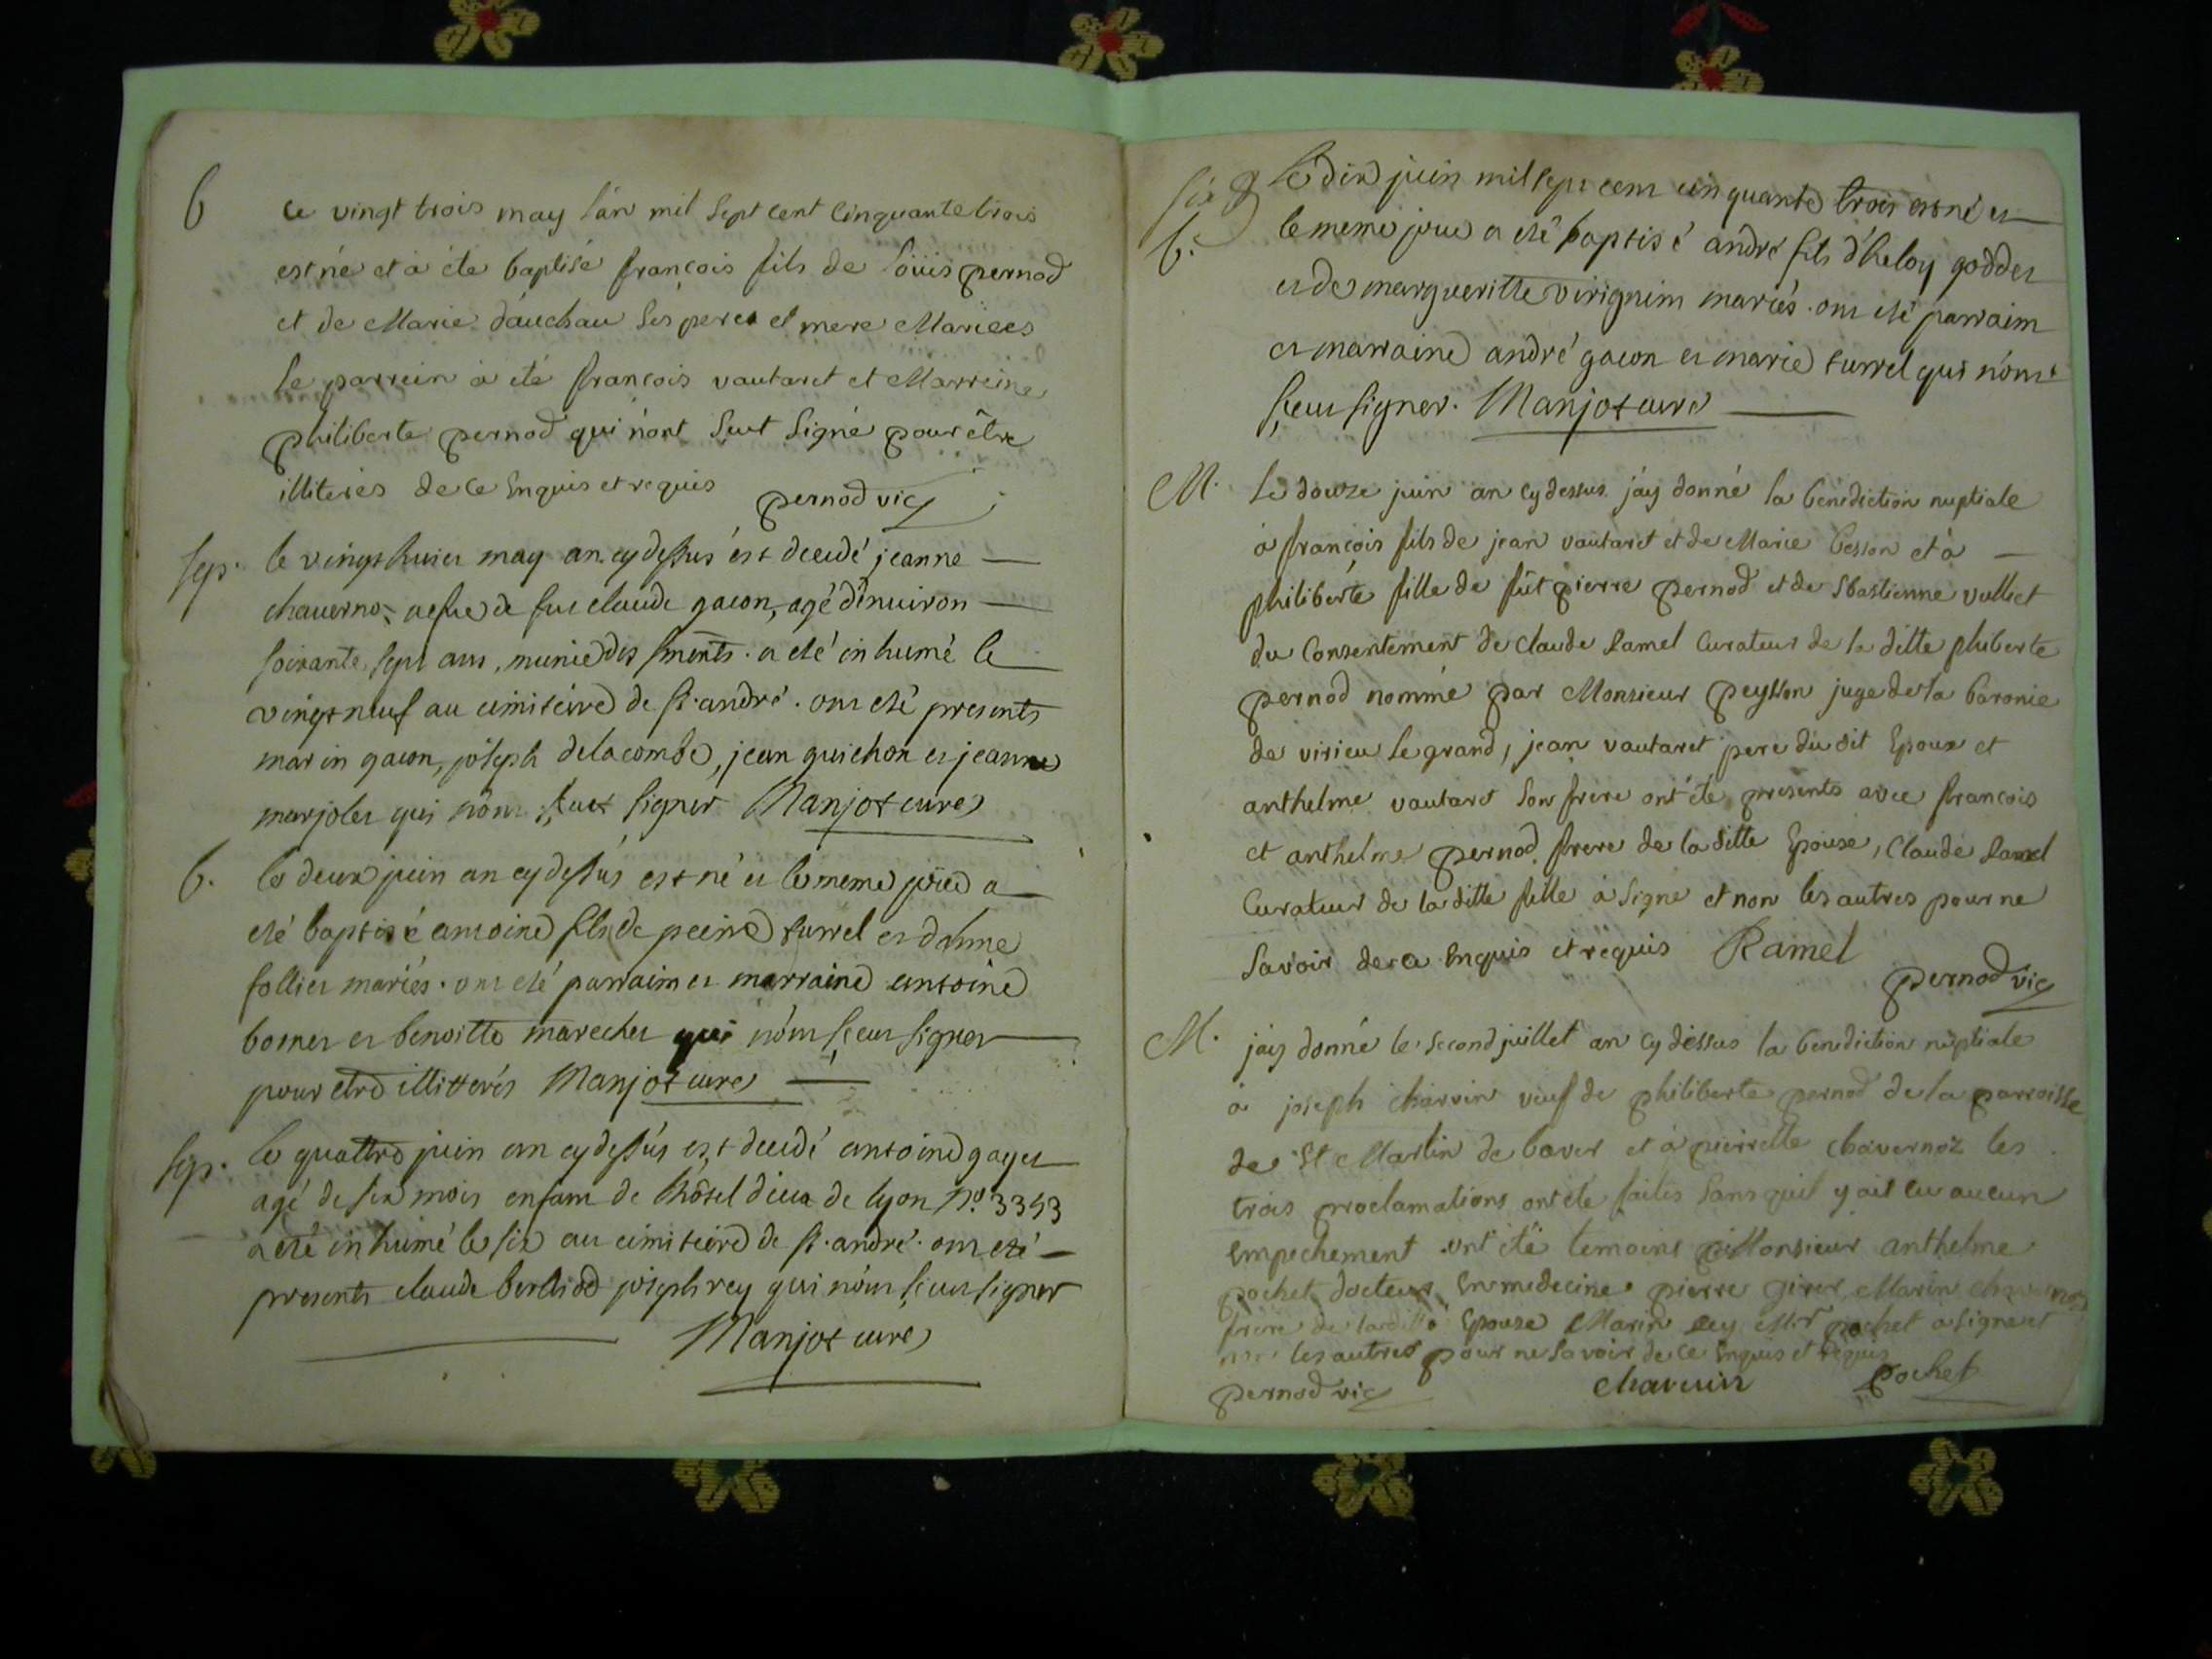 b
ce vingt trois may l'an mil sept cent cinquante trois
est né et à été baptisé françois fils de loüis pernod
et de Marie dauchau ses peres et mere Mariees
le parrein à été françois vautaret et Marreine
philiberte pernod qui n'ont sçut signé pour être
illiteres de ce enquis et requis pernod vic
sep. le vingt huict may an cy dessus est decedé jeanne
chauerno, vefue de feu claude gacon, agé d'enuiron
soixante sept ans, munie des sments. a eté inhumé le
vingt neuf au cimiteire de st. andré. ont eté presents
marin gacon, joseph delacombe, jean guichon et jeanne
marjolet qui n'ont sçeut signer Manjot curé
b. le deux juin an cy dessus est né et le meme jour a
eté baptisé antoine fils de peirre surrel et danne
follier mariés. ont eté parraim et marraine antoine
bornet et benoitte marechet qui n'ont sçeut signer
pour etre illitterés Manjot curé
sep. le quattre juin an cy dessus est decedé antoine gaget
agé de six mois enfant de l'hôtel dieu de lyon No. 3353
a eté inhumé le six au cimiteire de st. andré. ont eté
presents claude berliod joseph rey qui n'ont sçeut signer
Manjot curé
six
b. Le dix juin mil sept cent cinquante trois est né et
le meme jour a eté baptisé andré fils d'heloy goddet
et de margueritte virignim mariés. ont eté parraim
et marraine andré gacon et marie surrel qui n'ont
sçeut signer. Manjot curé
M. Le douze juin an cy dessus jáy donné la benediction nuptiale
à françois fils de jean vautaret et de Marie besson et à
philiberte fille de fût pierre pernod et de Sbastienne vulliet
du Consentement de claude Ramel Curateur de la ditte phiberte
pernod nommé par Monsieur peysson juge de la baronie
de virieu le grand, jean vautaret pere du dit Epoux et
anthelme vautaret son frere ont été presents avec françois
et anthelme pernod frere de la ditte Epouse, Claude Ramel
Curateur de la ditte fille à Signé et non les autres pour ne
Savoir de ce enquis et requis Ramel
pernod vic
M. jáy donné le second juillet an cy dessus la benediction nuptiale
à joseph charvin veuf de philiberte pernod de la parroisse
de St Martin de bavet et à pierrette chavernoz les
trois proclamations ont été faites sans quil y ait eu aucun
Empechement ont été temoins Monsieur anthelme
pochet docteur En medecine pierre giret Marin chavernoz
frere de la ditte Epouse Marin Rey Mr pochet a signé et
non les autres pour ne Savoir de ce Enquis et requis
pernod vic charuin pochet